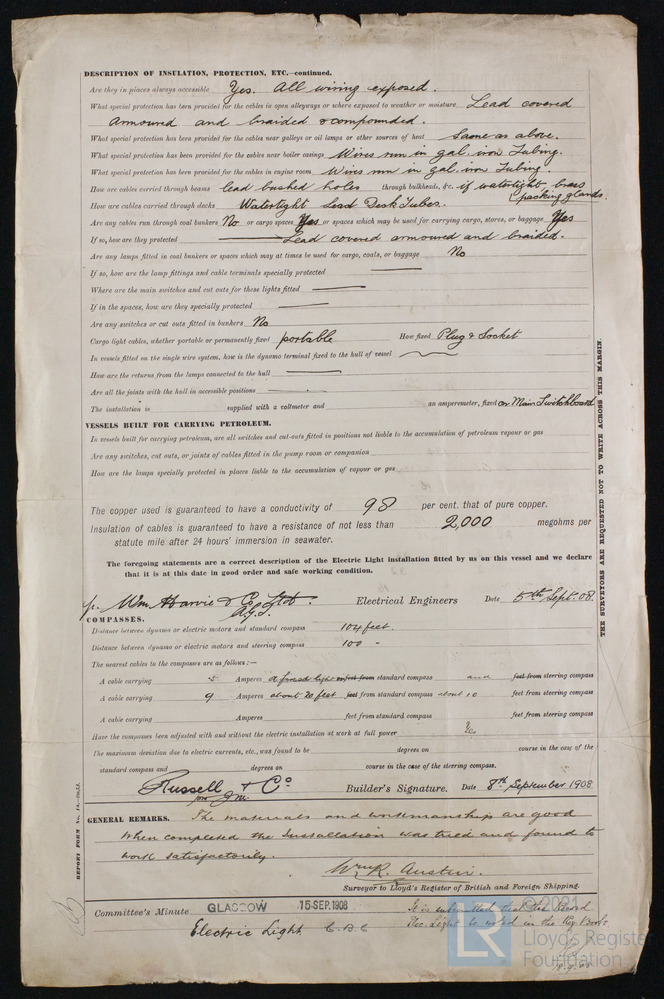 DESCRIPTION OF INSULATION, PROTECTION, ETC.—continued.
Are they in places always accessible Yes. All wiring exposed.
What special protection has been provided for the cables in open alleyways or where exposed to weather or moisture Lead covered
armoured and braided & compounded.
What special protection has been provided for the cables near galleys or oil lamps or other sources of heat Same as above.
What special protection has been provided for the cables near boiler casings Wires run in gal. iron Tubing.
What special protection has been provided for the cables in engine room Wires run in gal. iron Tubing.
How are cables carried through beams lead bushed holes through bulkheads, &c. if watertight, brass
packing glands.
How are cables carried through decks Watertight Lead Deck Tubes.
Are any cables run through coal bunkers No or cargo spaces Yes or spaces which may be used for carrying cargo, stores, or baggage Yes
If so, how are they protected Lead covered armoured and braided.
Are any lamps fitted in coal bunkers or spaces which may at times be used for cargo, coals, or baggage No
If so, how are the lamp fittings and cable terminals specially protected
Where are the main switches and cut outs for these lights fitted
If in the spaces, how are they specially protected
Are any switches or cut outs fitted in bunkers No
Cargo light cables, whether portable or permanently fixed portable How fixed Plug & Socket
In vessels fitted on the single wire system, how is the dynamo terminal fixed to the hull of vessel
How are the returns from the lamps connected to the hull
Are all the joints with the hull in accessible positions
The installation is supplied with a voltmeter and an amperemeter, fixed on Main Switchboard
VESSELS BUILT FOR CARRYING PETROLEUM.
In vessels built for carrying petroleum, are all switches and cut-outs fitted in positions not liable to the accumulation of petroleum vapour or gas
Are any switches, cut outs, or joints of cables fitted in the pump room or companion
How are the lamps specially protected in places liable to the accumulation of vapour or gas
The copper used is guaranteed to have a conductivity of 98 per cent. that of pure copper.
Insulation of cables is guaranteed to have a resistance of not less than 2,000 megohms per
statute mile after 24 hours' immersion in seawater.
The foregoing statements are a correct description of the Electric Light installation fitted by us on this vessel and we declare
that it is at this date in good order and safe working condition.
p. Wm Harvie & Co Ltd. Electrical Engineers Date 5th Sept. 08.
COMPASSES.
Distance between dynamo or electric motors and standard compass 104 feet.
Distance between dynamo or electric motors and steering compass 100 "
The nearest cables to the compasses are as follows:—
A cable carrying Amperes feet from standard compass and feet from steering compass
A cable carrying 9 Amperes about 20 feet feet from standard compass about 10 feet from steering compass
A cable carrying Amperes feet from standard compass feet from steering compass
Have the compasses been adjusted with and without the electric installation at work at full power Yes
The maximum deviation due to electric currents, etc., was found to be degrees on course in the case of the
standard compass and degrees on course in the case of the steering compass.
Russell & Co Builder's Signature. Date 8th September 1908
GENERAL REMARKS. The materials and workmanship are good
When completed the Installation was tried and found to
work satisfactorily.
Wm R. Austin.
Surveyor to Lloyd's Register of British and Foreign Shipping.
Committee's Minute GLASGOW 15 SEP. 1908 It is submitted that the Record
Electric Light Elec. Light be noted in the Reg. Book
THE SURVEYORS ARE REQUESTED NOT TO WRITE ACROSS THIS MARGIN.
© 2021
LR
Lloyd's Register
Foundation